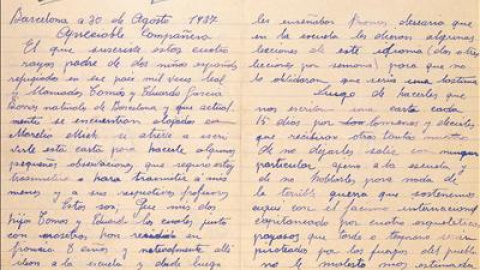 Barcelona a 30 de Agosto 1937
Apreciable Compañera
El que suscribe estos cuatro
rayas padre de dos niños españoles
refugiados en ese pais mil veces leal
y llamados Tomás y Eduardo García
naturales de Barcelona y que actual
mente se encuentran alojados en
Morelia se atreve a escri
birle esta carta para hacerle algunas
pequeñas observaciones que seguro estoy
para transmitir á mis
nenes y a sus respectivos profesores
Estos son; Que mis dos
hijo Tomás y Eduardo los cuales junto
con nosotros han residido en
francia 8 años y naturalmente allí
á la escuela y desde luego
les enseñaban frances desearia que
en la escuela les dieran algunas
lecciones de este idioma (dos o tres
lecciones por semana) para que no
lo olvidaran que seria una lastima
Luego de hacerles que
nos escriban una carta cada
15 dias por los menos y decirles
que recibiran otras tantas
de no dejarles salir con ningun
particular ajeno a la escuela y
de no hablarles para nada de
la terrible guerra que sostenemos
con el facismo internacional
capitaneado por cuatro
payasos que tarde o temprano seran
por los fuegos del pueblo
no le molesto mas estimada